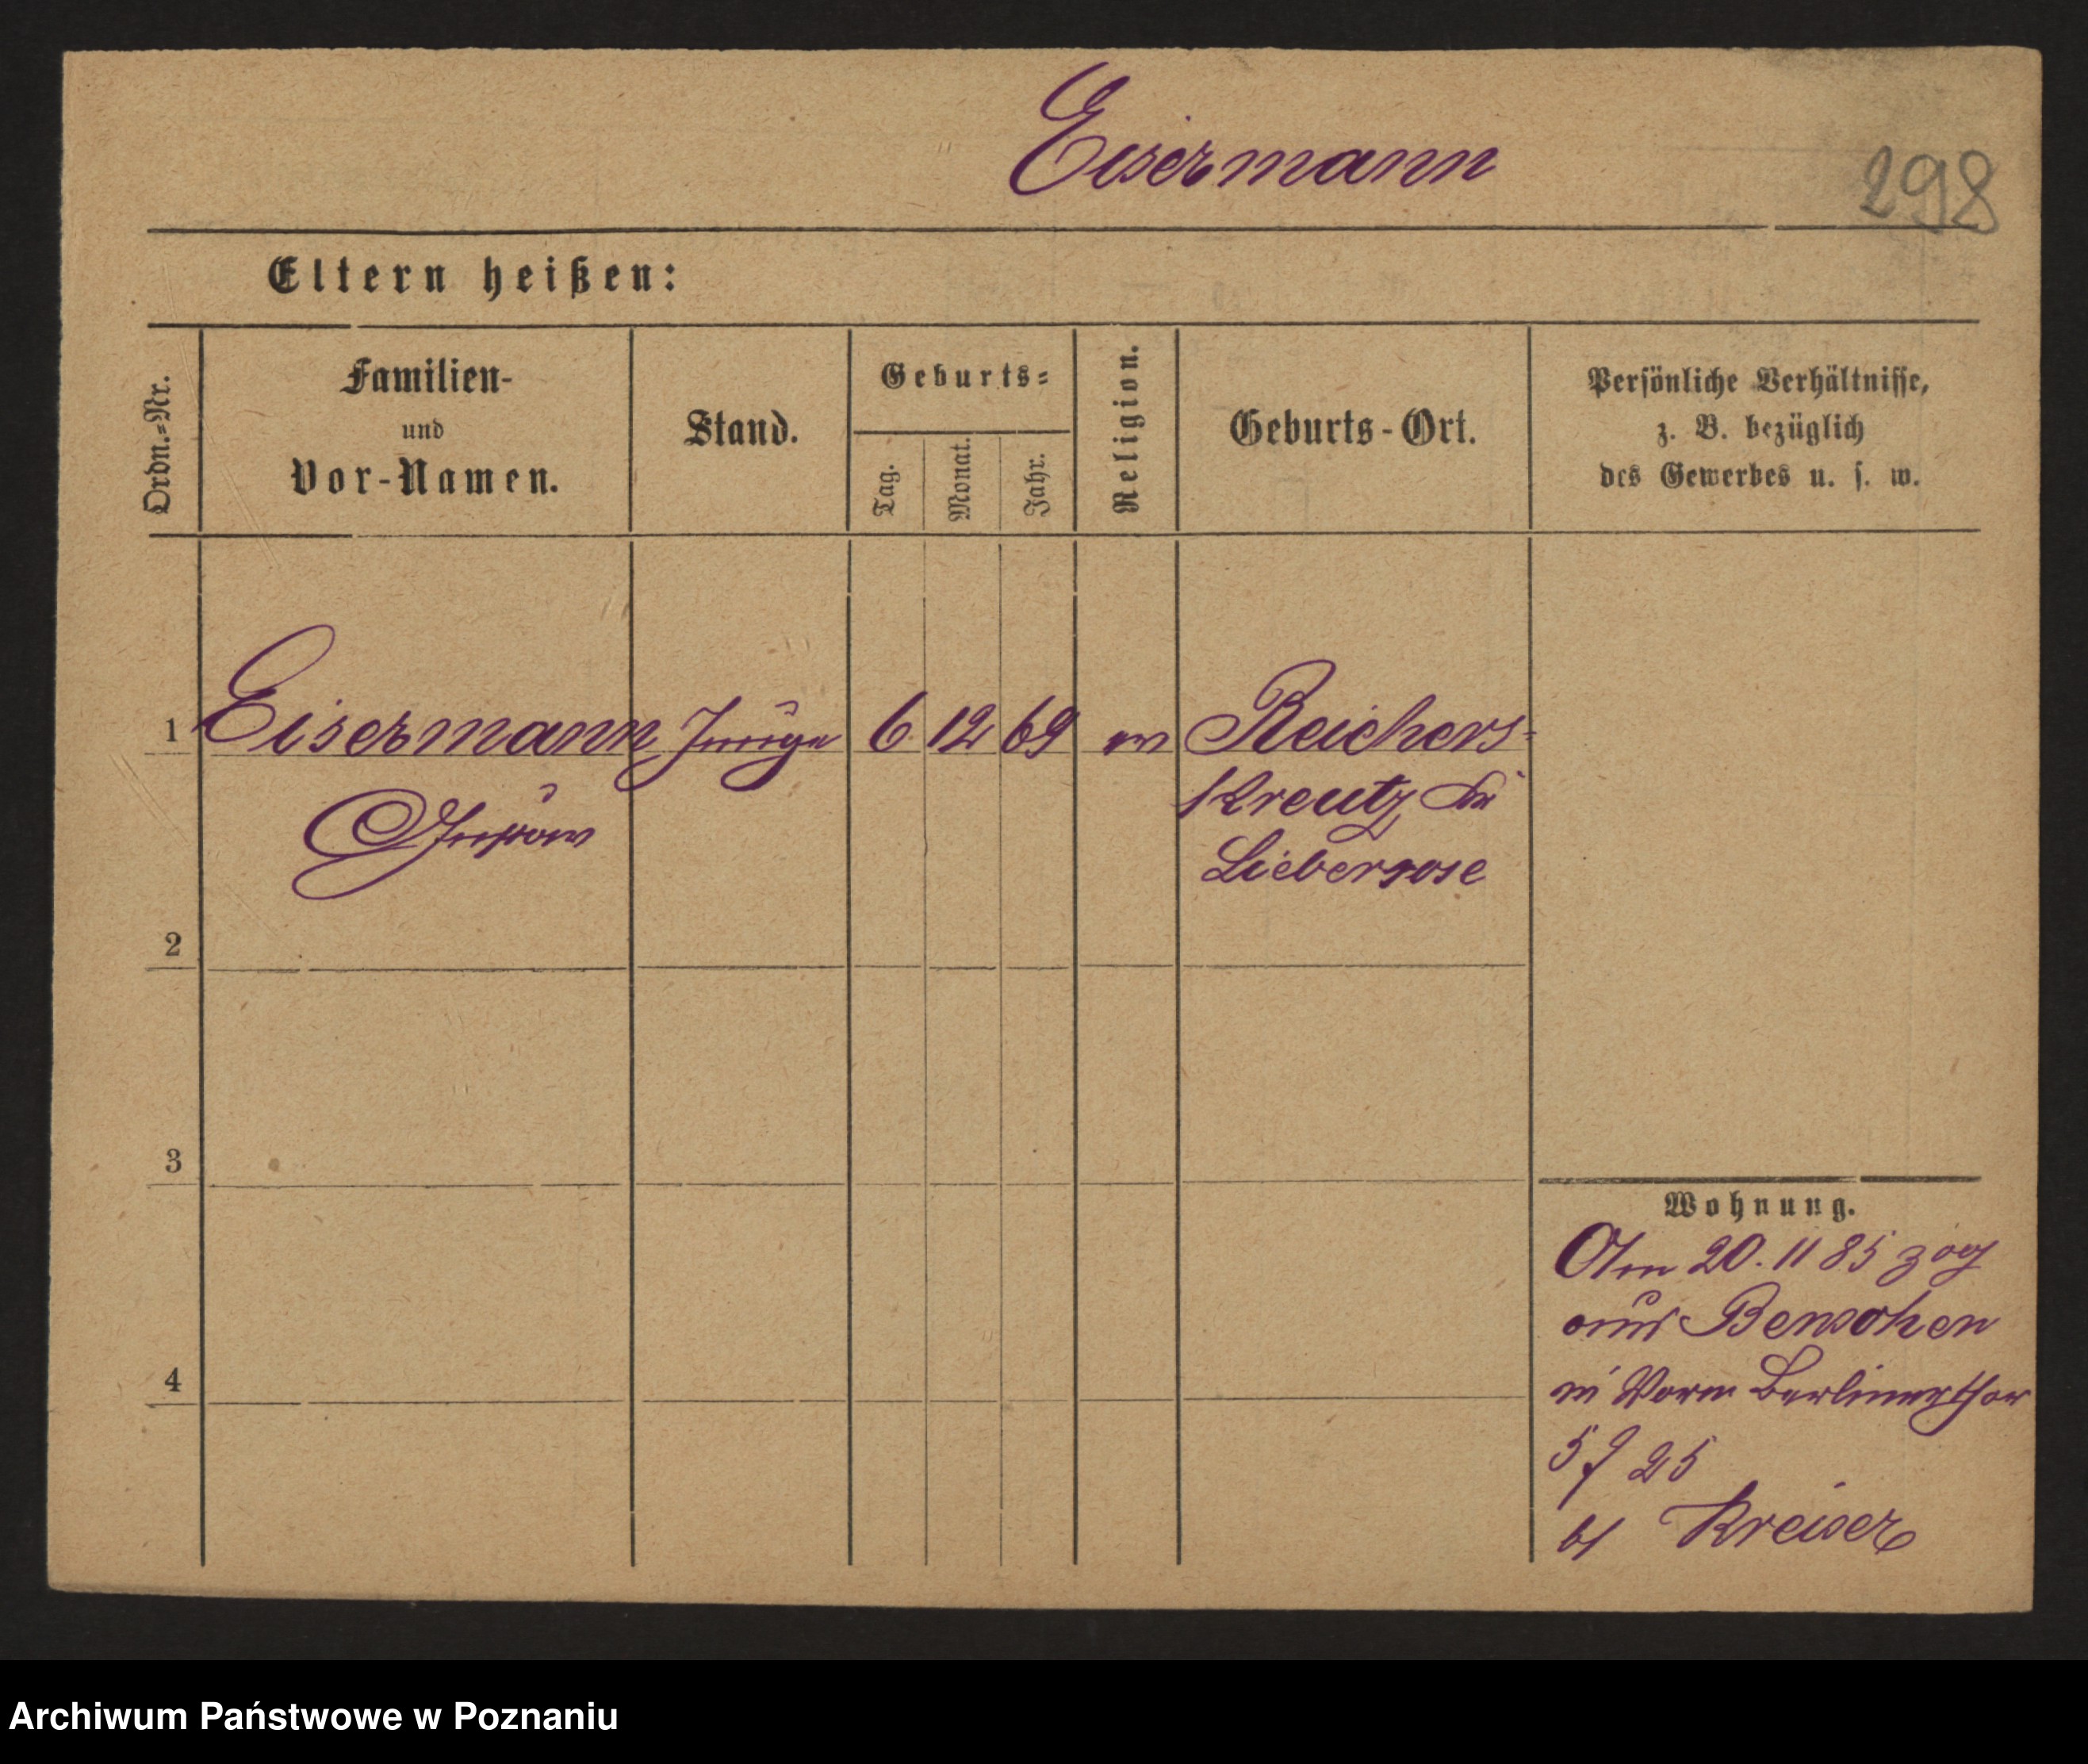 Eisermann
298
Eltern heißen:
Ordn.=Nr.
Familien-
und
Vor-Namen.
Stand.
Geburts=
Tag.
Monat.
Jahr.
Religion.
Geburts-Ort.
Persönliche Verhältnisse,
z. B. bezüglich
des Gewerbes u. s. w.
1 Eisermann Junge 6 12 69 ev Reichers-
Kreutz bei
Gustav
Lieberose
2
3
4
Wohnung.
Am 20. 11 85 zog
aus Bentschen
n Vorm Berlinerthor
5 f 25
bei Kreiser
Archiwum Państwowe w Poznaniu